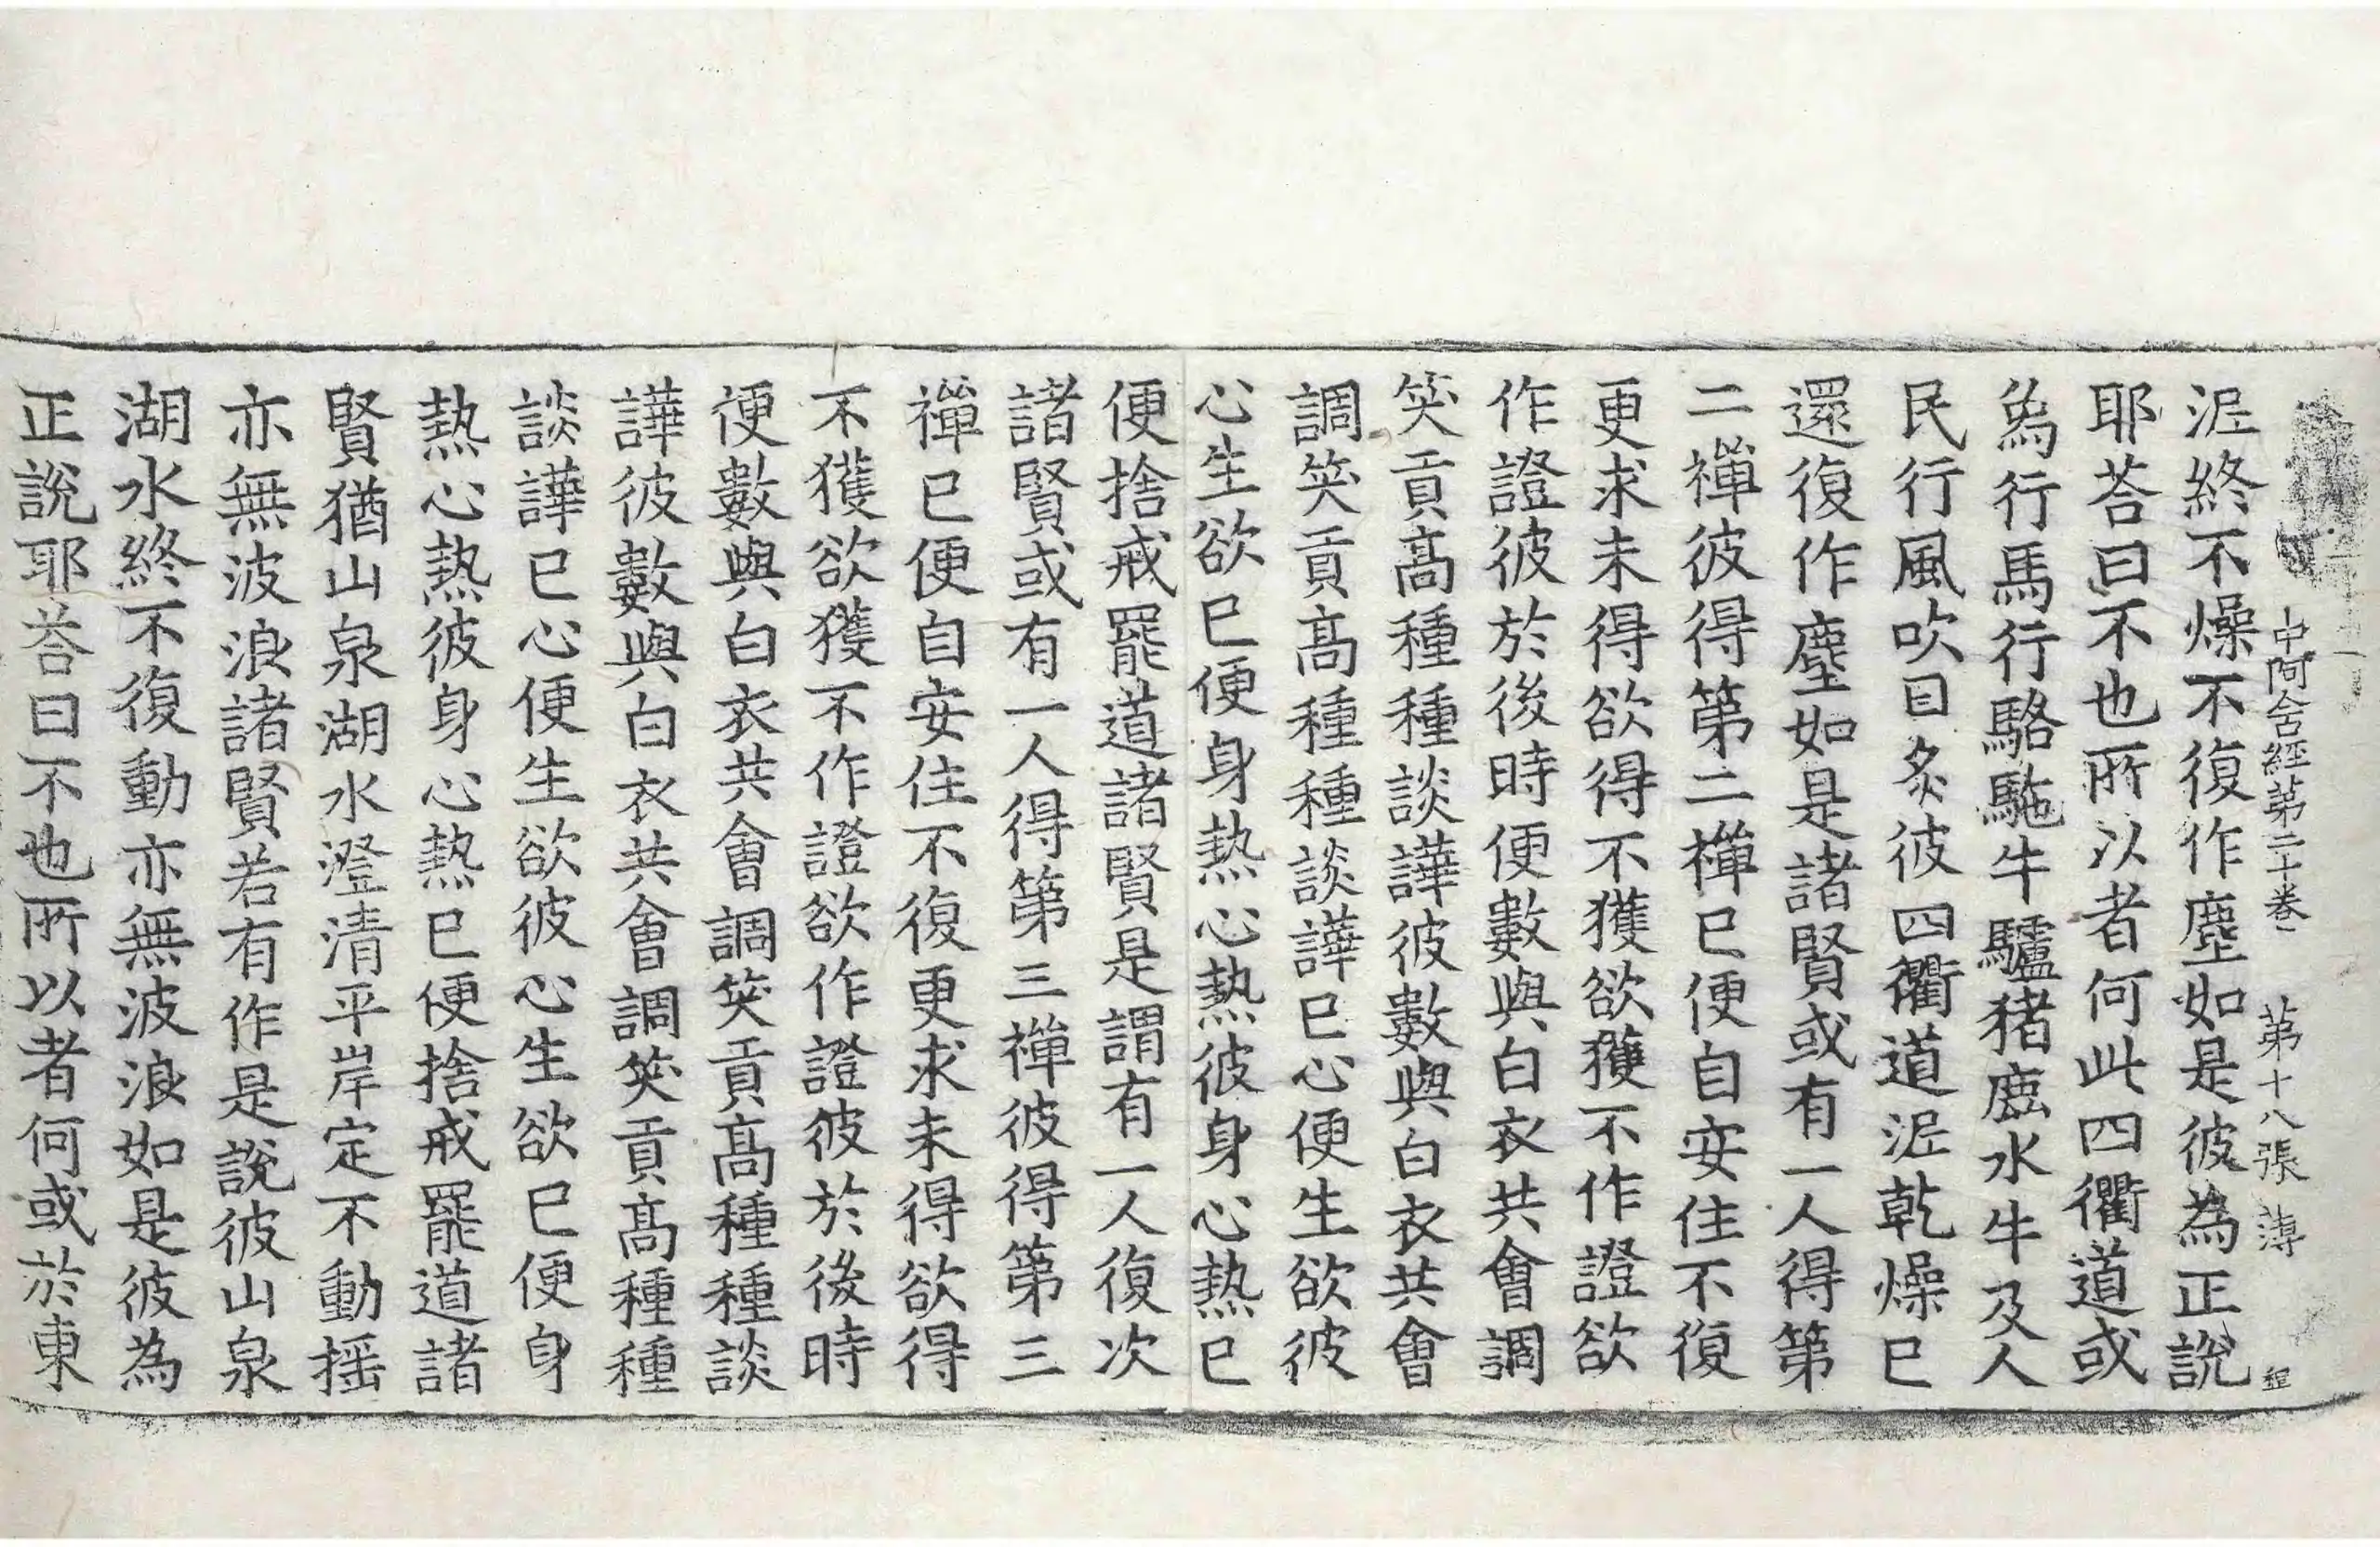 中阿含經第二十卷 第十八張 薄
泥終不燥不復作塵如是彼為正說
耶荅曰不也所以者何此四衢道或
爲行馬行駱駞牛驢猪鹿水牛及人
民行風吹日炙彼四衢道泥乾燥已
還復作塵如是諸賢或有一人得第
二禪彼得第二禪已便自安住不復
更求未得欲得不獲欲獲不作證欲
作證彼於後時便數與白衣共會調
笑貢高種種談譁彼數與白衣共會
調笑貢高種種談譁已心便生欲彼
心生欲已便身熱心熱彼身心熱已
便捨戒罷道諸賢是謂有一人復次
諸賢或有一人得第三禪彼得第三
禪已便自安住不復更求未得欲得
不獲欲獲不作證欲作證彼於後時
便數與白衣共會調笑貢高種種談
譁彼數與白衣共會調笑貢高種種
談譁已心便生欲彼心生欲已便身
熱心熱彼身心熱已便捨戒罷道諸
賢猶山泉湖水澄清平岸定不動揺
亦無波浪諸賢若有作是說彼山泉
湖水終不復動亦無波浪如是彼為
正說耶荅曰不也所以者何或於東